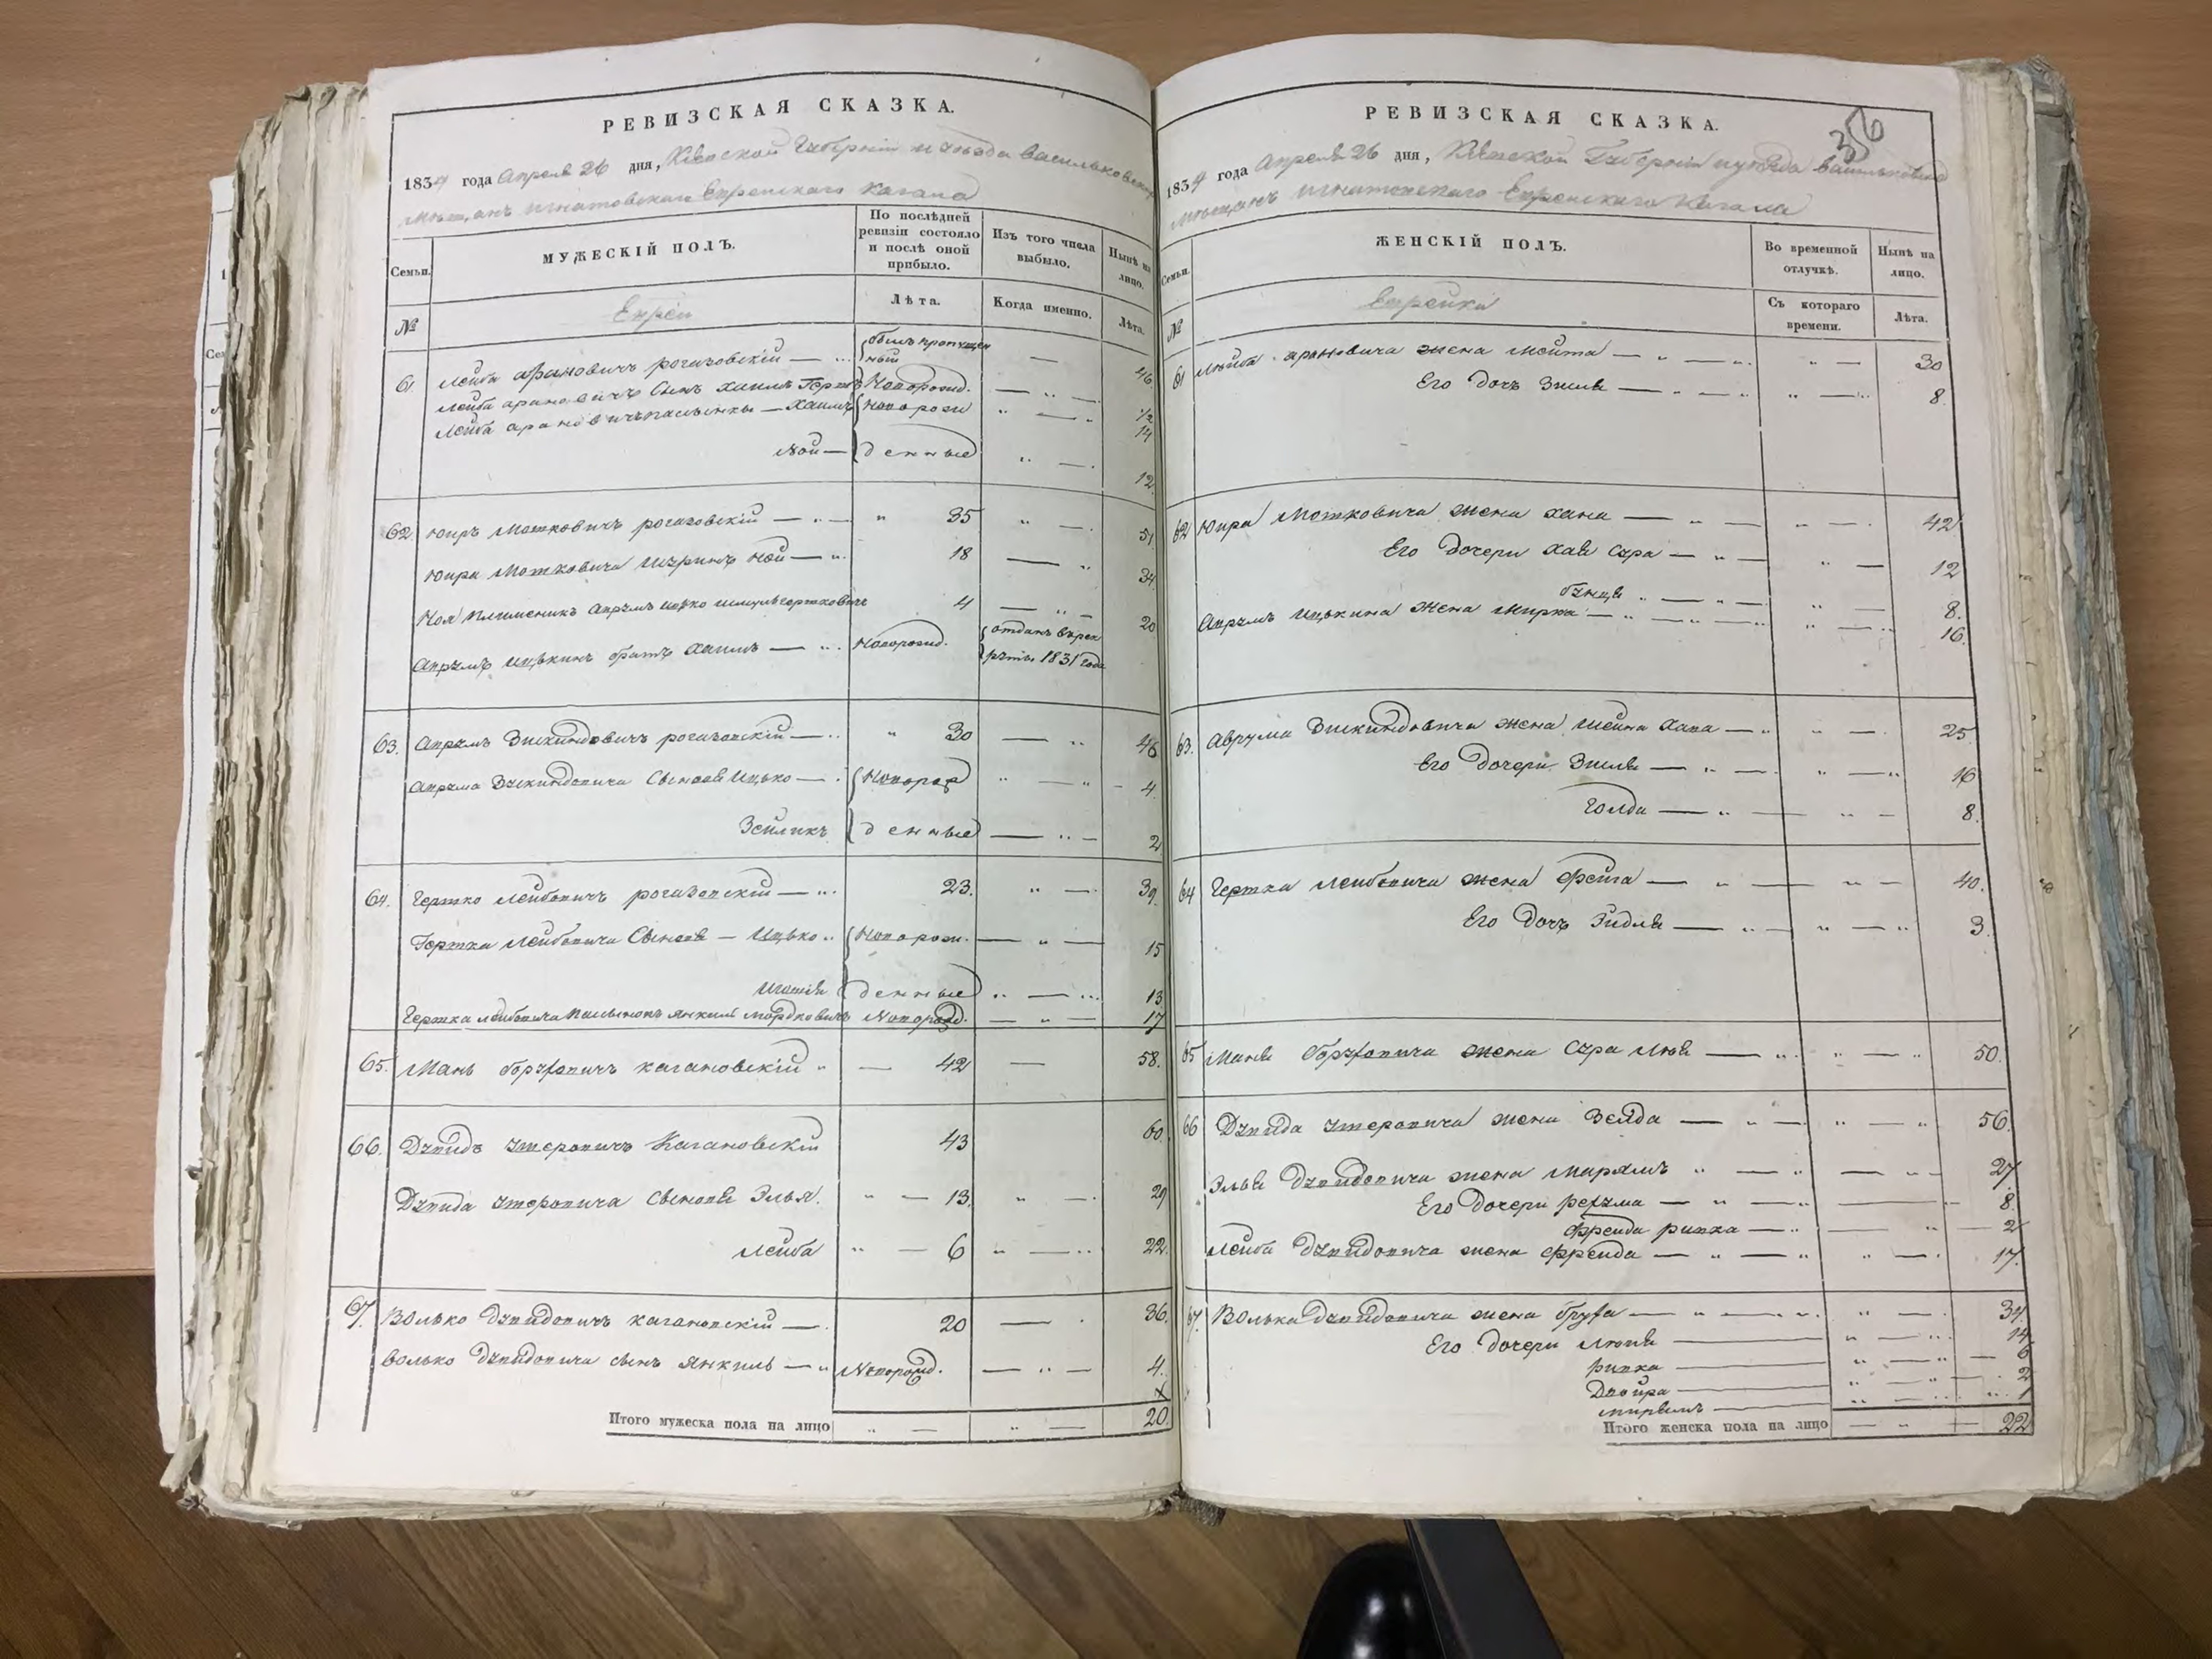 РЕВИЗСКАЯ СКАЗКА.
1834 года Апреля 26 дня, Кіевской Губерніи и уѣзда Васильковскихъ
мѣщанъ Игнатовскаго Еврейскаго Кагала
Семьи.
МУЖЕСКІЙ ПОЛЪ.
По послѣдней ревизіи состояло и послѣ оной прибыло.
Изъ того числа выбыло.
Нынѣ на лицо.
№
Евреи
Лѣта.
Когда именно.
Лѣта.
61 Лейба Ароновичъ Рогазовскій — былъ пропущенный — 46
Лейба Ароновичъ Сынъ Хаимъ Гертъ Новорожд. — 1/2
Лейба Ароновичъ пасынки — Хаимъ Новорож 14
Ной — денные 12
62. Юиръ Мотковичъ Рогазовскій — 35 — 51
Юира Мотковича Шуринъ Ной — 18 — 34
Ноя Племеникъ Аврумъ Ицко 4 — 20
Аврумъ Ицькинъ братъ Хаимъ — Новорожд. отданъ в рекруты 1831 года
63. Аврумъ Зискиндовичъ Рогазовскій — 30 — 46
Аврума Зискиндовича Сыновя Ицько — Новорож — 4
Зейликъ денные — 2
64. Гертко Лейбовичъ Рогазовскій — 23. — 39.
Гертка Лейбовича Сыновя — Ицько Новорож. — 15
денные — 13
Гертка Лейбовича Пасынокъ Янкиль Мордковичъ Новорожд. — 17
65. Мань Борухович Кагановскій — 42 — 58.
66. Дувидъ Кагановскій 43 60.
Дувида Сыновя Элья. — 13. — 29
Лейба — 6 — 22.
67. Волько Дувидовичъ Кагановскій — 20 — 36.
Волько Дувидовича сынъ Янкиль — Новорожд. — 4.
Итого мужеска пола на лицо — 20.
РЕВИЗСКАЯ СКАЗКА.
356
1834 года Апреля 26 дня, Кіевской Губерніи и уѣзда Васильковскихъ
мѣщанъ Игнатовскаго Еврейскаго Кагала
Семьи.
ЖЕНСКІЙ ПОЛЪ.
Во временной отлучкѣ.
Нынѣ на лицо.
№
Еврейки
Съ котораго времени.
Лѣта.
61 Лейба Ароновича жена — 30
Его дочь Зисля — 8.
62 Юира Мотковича жена Хана — 42
Его дочери Хая Сура — 12
8.
Аврумъ Ицькина жена Мирка — 16.
63. Аврума Зискиндовича жена Шейна Хана — 25
Его дочери Зисля — 16
Голда — 8.
64 Гертка Лейбовича жена Фейга — 40.
Его дочь Эидля — 3.
65 Маня Боруховича жена Сура — 50.
66 Дувида жена Зелда — 56.
Эльи Дувидовича жена Марямъ — 27
Его дочери — 8.
Фрейда Ривка — 2
Лейба Дувидовича жена Фрейда — 17.
67. Волька Дувидовича жена Бруха — 34.
Его дочери — 14
Ривка — 6
Двойра — 2
1
Итого женска пола на лицо — 22